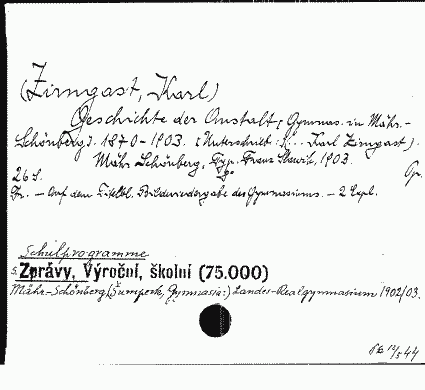 (Zirngast, Karl)
Geschichte der Anstalt [Gymnas. in Mähr.-
Schönberg]. 1870-1903. [Unterschrift: ... Karl Zirngast].
Mähr. Schönberg, Typ. Franz Slawit, 1903.
26 S. 8°
Fr. - Auf dem Titelbl. Bilderwiedergabe des Gymnasiums. - 2 Expl.
Schulprogramme
s. Zprávy, Výroční, školní (75.000)
Mähr.-Schönberg (Šumperk, Gymnasia:) Landes-Realgymnasium 1902/03.